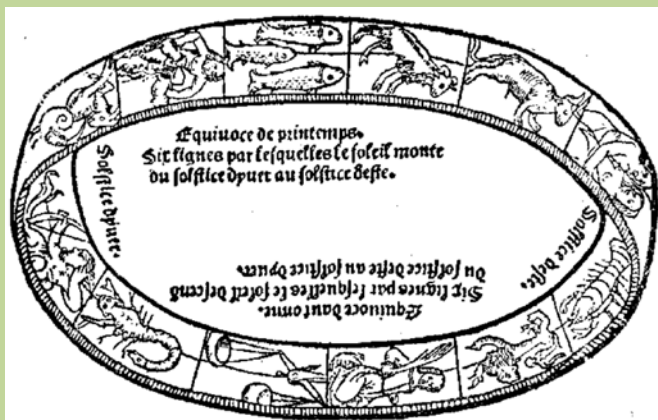 Equinoce de printemps.
Six signes par lesquelles le soleil monte
du solstice dyuer au solstice deste.
Solstice dyuer.
Solstice deste.
Equinoce dautonne.
Six signes par lesquelles le soleil descend
du solstice deste au solstice dyuer.